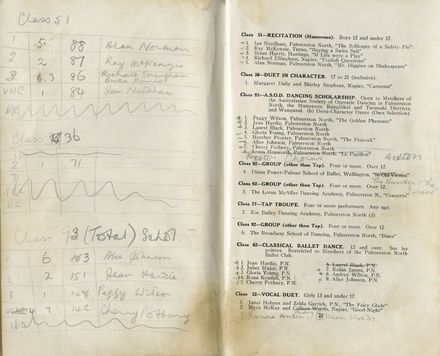 Class 51
1 5 88 Alan Norman
2 2 87 Ray McKenzie
3 4,3 86 Richard Effingham
Brian Harris
VHC 1 84 Ian Needham
36
71
Class 93 (Total) Schol.
1 6 153 Alice Johnson
2 2 151 Jean Hardie
3 1 148 Peggy Wilson
4 7 142 Cherry Potbury
Class 51—RECITATION (Humorous). Boys 12 and under 17.
1. Ian Needham, Palmerston North, "The Soliloquy of a Safety Pin"
2. Ray McKenzie, Turua, "Buying a Swim Suit"
3. Brian Harris, Hastings, "If Life were a Play"
4. Richard Effingham, Napier, "Foolish Questions"
5. Alan Norman, Palmerston North, "Mr. Higgins on Shakespeare"
Class 36—DUET IN CHARACTER. 17 to 21 (inclusive).
1. Margaret Dally and Shirley Stephens, Napier, "Carmena"
Class 93—A.S.O.D. DANCING SCHOLARSHIP. Open to Members of
the Australasian Society of Operatic Dancing in Palmerston
North, the Manawatu, Rangitikei and Taranaki Districts,
and Wanganui. (b) Demi-Character Dance (Own Selection)
1. Peggy Wilson, Palmerston North, "The Golden Pheasant"
2. Jean Hardie, Palmerston North
3. Laurel Black, Palmerston North
4. Gloria Young, Palmerston North
5. Heather Procter, Palmerston North, "The Peacock"
6. Alice Johnson, Palmerston North
7. Cherry Potbury, Palmerston North
8. Robin Hepworth, Palmerston North, "Le Papillon"
Class 92—GROUP (other than Tap). Four or more. Over 12.
4. Diana Power-Palmer School of Ballet, Wellington, "In Old Vienna"
Class 92—GROUP (other than Tap). Four or more. Over 12.
5. The Lorna McAffer Dancing Academy, Palmerston N., "Concerto"
Class 77—TAP TROUPE. Four or more performers. Any age.
7. Zoe Bailey Dancing Academy, Palmerston North (3)
Class 92—GROUP (other than Tap). Four or more. Over 12.
6. The Broadway School of Dancing, Palmerston North, "Blues"
Class 82—CLASSICAL BALLET DANCE. 12 and over. Solo on pointes.
Restricted to Members of the Palmerston North
Ballet Club.
1. Jean Hardie, P.N.
2. Juliet Major, P.N.
3. Gloria Young, P.N.
4. Rona Kendall, P.N.
5. Cherry Potbury, P.N.
6. Laurel Black, P.N.
7. Robin James, P.N.
8. Audrey Wilton, P.N.
9. Alice Johnson, P.N.
Class 32—VOCAL DUET. Girls 13 and under 17.
1. Janet Holmes and Zelda Garrick, P.N., "The Fairy Glade"
2. Myra McKay and Colleen Woods, Napier, "Good-Night"